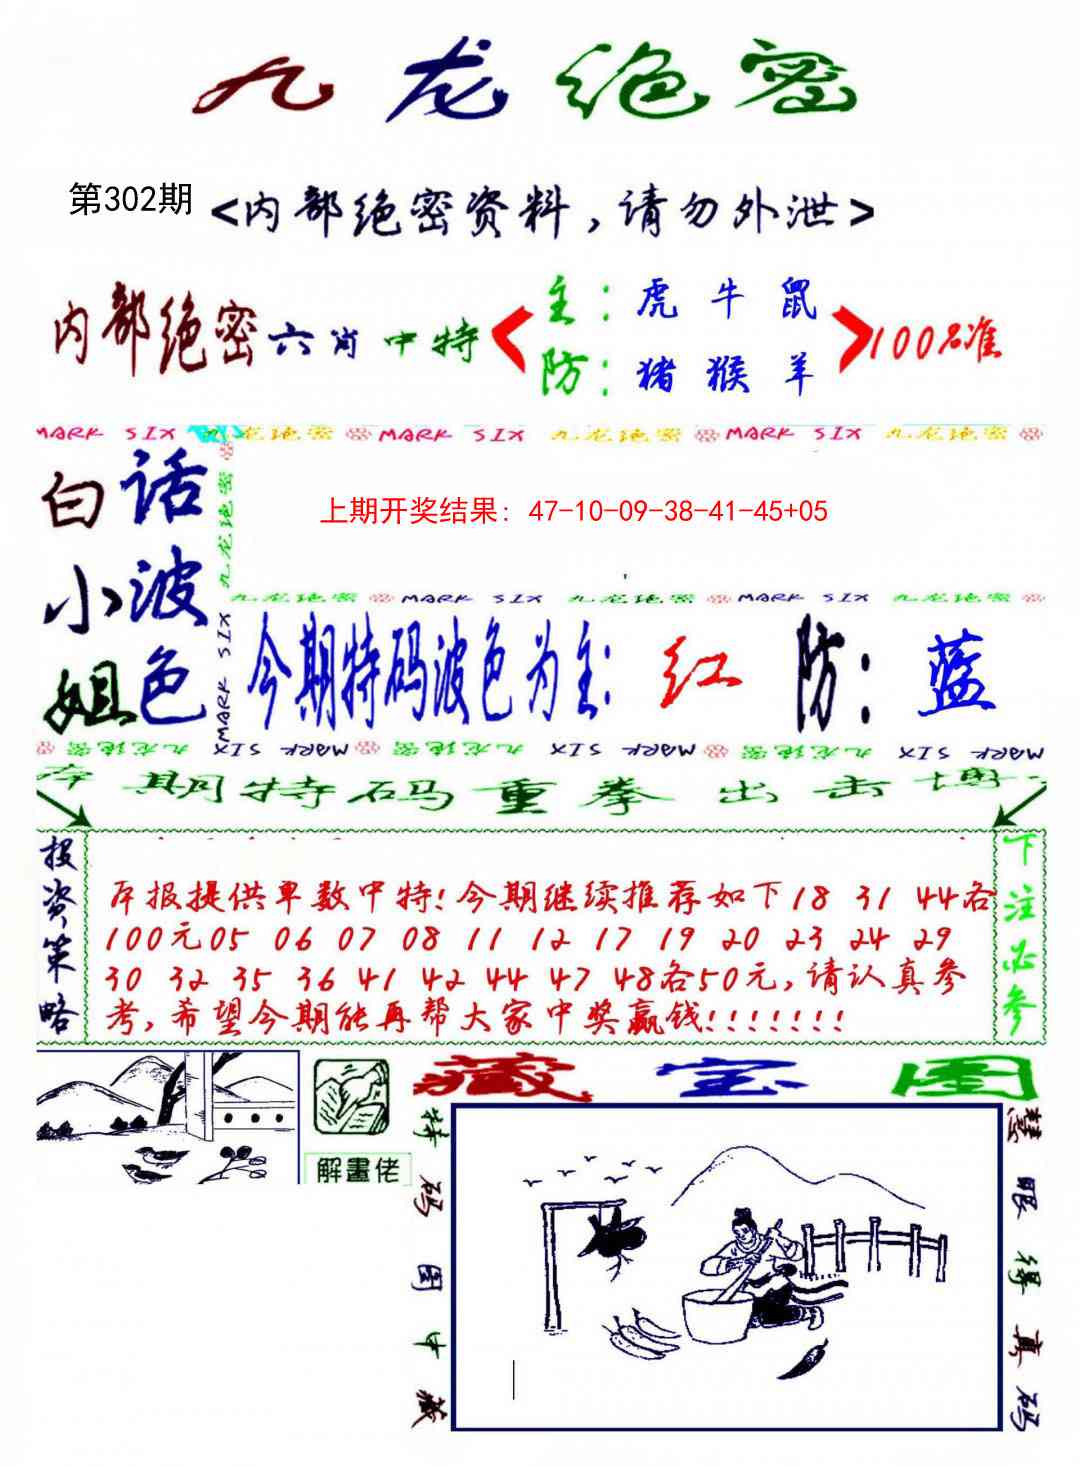 九龙绝密
第302期 <内部绝密资料,请勿外泄>
内部绝密六肖中特
主:虎 牛 鼠
防:猪 猴 羊
100%准
MARK SIX 九龙绝密 MARK SIX 九龙绝密 MARK SIX 九龙绝密
白话
小波
姐色
九龙绝密
MARK SIX
上期开奖结果: 47-10-09-38-41-45+05
九龙绝密 MARK SIX 九龙绝密 MARK SIX 九龙绝密
今期特码波色为主: 红 防: 蓝
九龙绝密 MARK SIX 九龙绝密 MARK SIX 九龙绝密 MARK SIX
本期特码重拳出击博一
投资策略
本报提供单数中特!今期继续推荐如下18 31 44各
100元05 06 07 08 11 12 17 19 20 23 24 29
30 32 35 36 41 42 44 47 48各50元,请认真参
考,希望今期能再帮大家中奖赢钱!!!!!!!
下注必参
解畫佬
藏宝图
特码图中藏
慧眼得真码